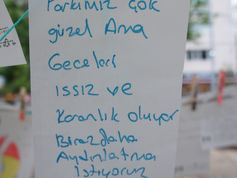 Parkımız çok
güzel Ama
Geceleri
ıssız ve
Karanlık oluyor
Biraz daha
Aydınlatma
İstiyoruz